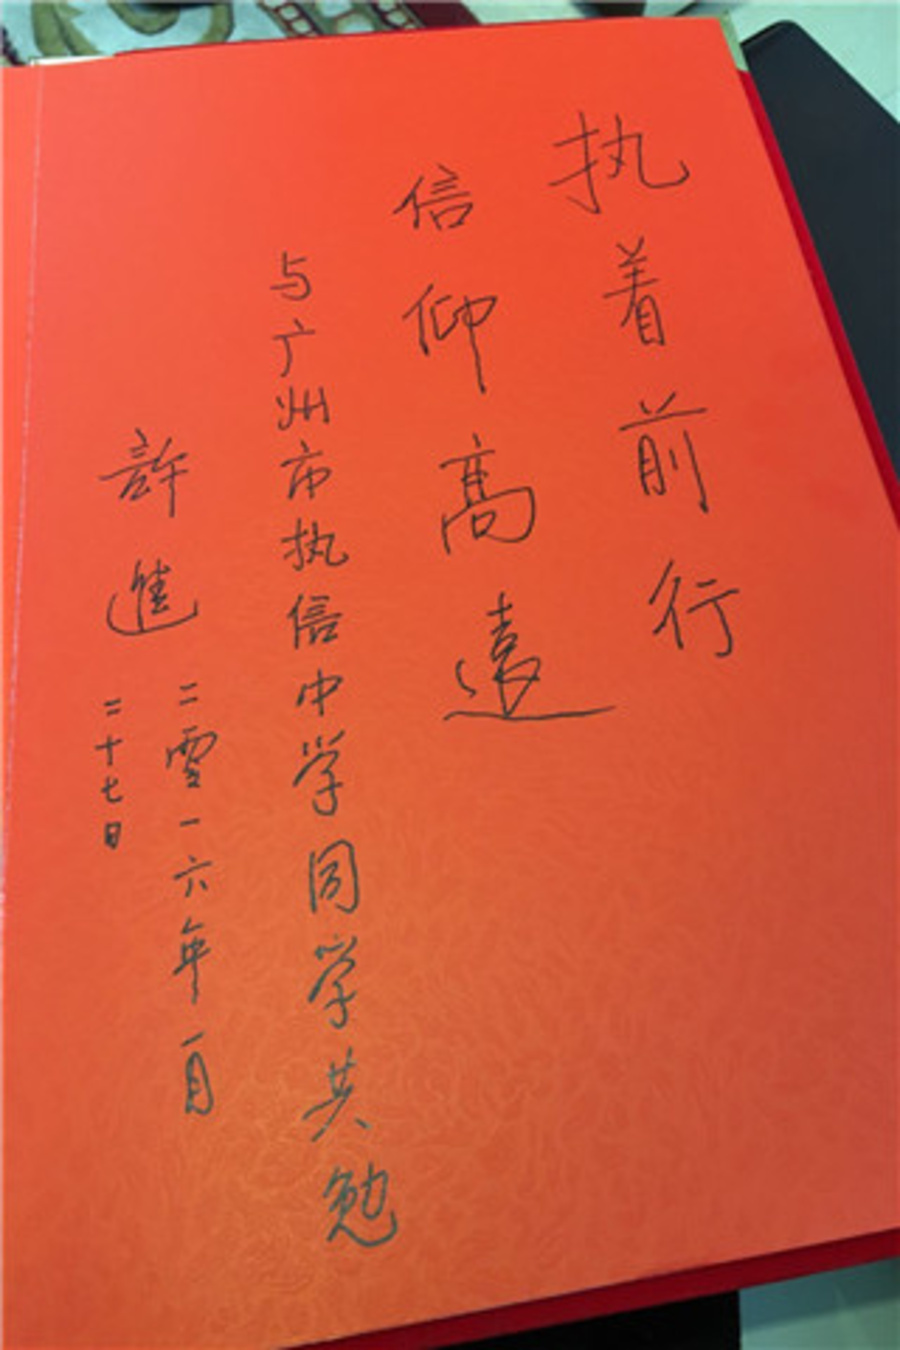 执着前行
信仰高遠
与广州市执信中学同学共勉
許進
二零一六年一月
二十七日